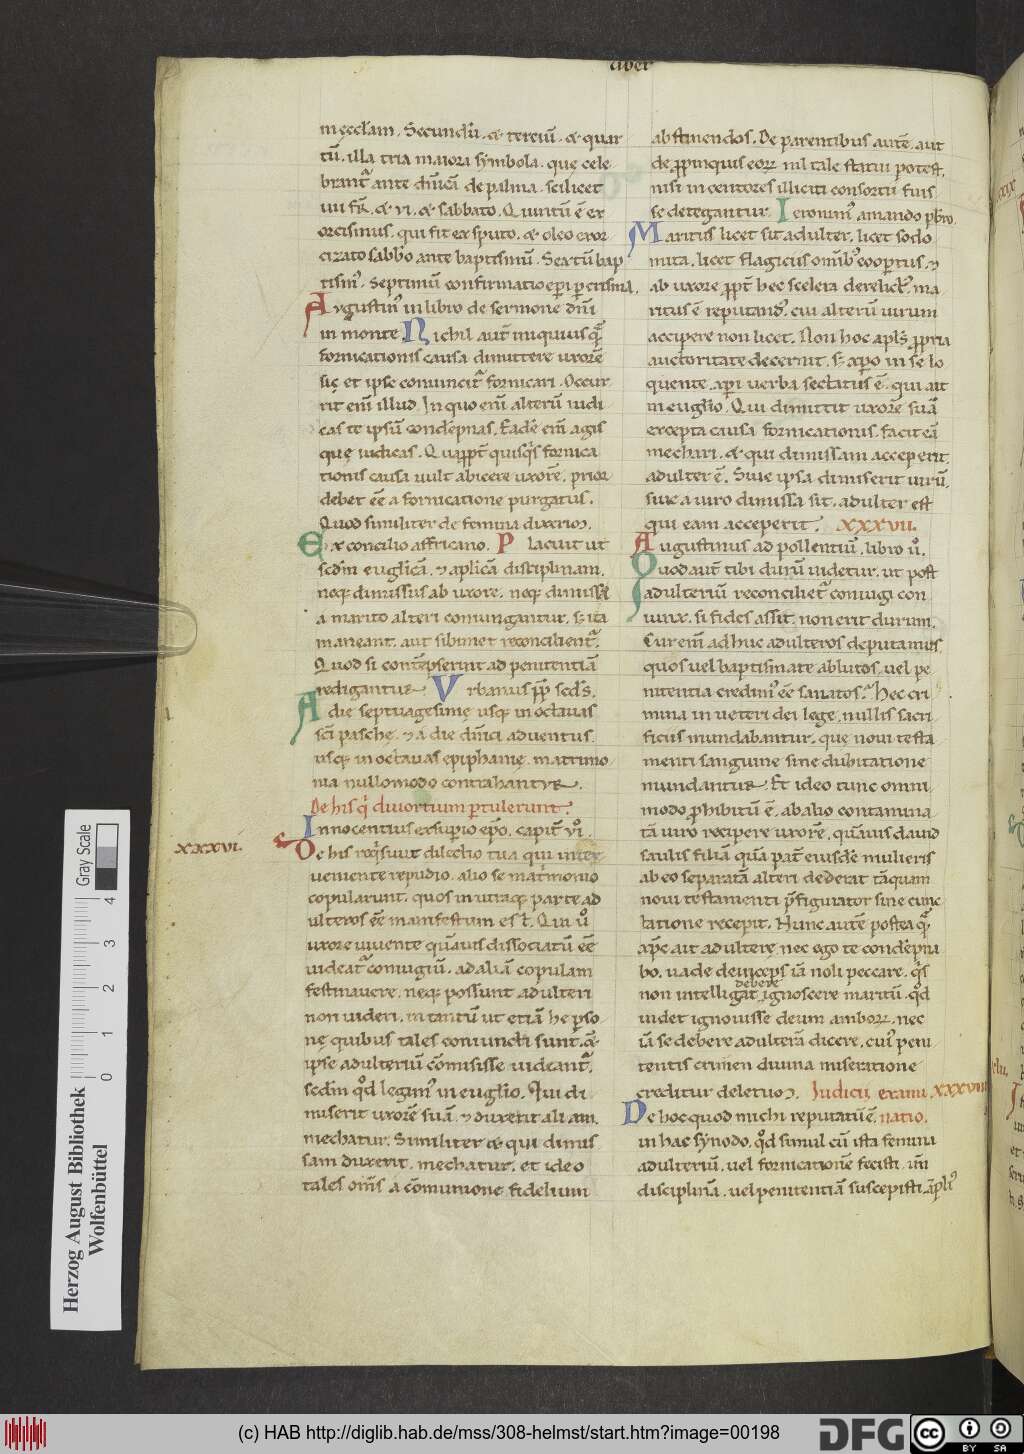 liber
in ęccl̄am. Secundū. & terciū. & quar
tū. illa tria maiora symbola. quę cele
brant̃ ante dn̄icā de palma. scilicet
iiii fr̃. & vi. & sabbato. Quintū ē ex
orcismus. qui fit ex sputo. & oleo exor
cizato sabb̄o ante baptismū. Sextū bap
tism᾽. Septimū confirmatio ep̄i p crisma.
Augustin᾽ in libro de sermone dn̄i
in monte. Nichil aut̄ iniquius quā
fornicationis causa dimittere uxorē
si et ipse conuincit̃ fornicari. Occur
rit enī illud. In quo enī alterū iudi
cas te ipsū condēpnas. Eadē enī agis
quę iudicas. Quapp̄t quisq̄s fornica
tionis causa uult abicere uxorē. prior
debet eē a fornicatione purgatus.
Quod similiter de femina dixerim.
Ex concilio affricano. Placuit ut
scdm euglicā. & aplicā disciplinam.
neq; dimissus ab uxore. neq; dimissa
a marito alteri coniungantur. s; ita
maneant. aut sibimet reconcilient̃.
Quod si contēpserint ad penitentiā
redigantur. Urbanus pp̄ scds.
A die septuagesimę usq; in octauas
sc̄i paschę. & a die dn̄ici aduentus
usq; in octauas epiphanię. matrimo
nia nullomodo contrahantur.
De his q̄ diuortium ptulerunt.
Innocentius exsupio ep̄o. capit̄ vi᾽.
xxxvi.
De his req̄siuit dilectio tua qui inter
ueniente repudio. alio se mat̃monio
copularunt. quos in utraq; parte ad
ulteros eē manifestum est. Qui u᾽
uxore uiuente quāuis dissociatū eē
uideat̃ coniugiū. ad aliā copulam
festinauere. neq; possunt adulteri
non uideri. in tantū ut etiā he pso
nę quibus tales coniuncti sunt. &
ipse adulteriū cōmisisse uideant̃.
scdm qd legim᾽ in euglio. Qui di
miserit uxorē suā. & duxerit aliam.
mechatur. Similiter & qui dimis
sam duxerit. mechatur. et ideo
tales om̄s a cōmunione fidelium
abstinendos. De parentibus autē. aut
de ppinquis eoꝝ nil tale statui potest.
nisi incentores illiciti consortii fuis
se detegantur. Ieronim᾽ amando pb̄ro.
Maritus licet sit adulter. licet sodo
mita. licet flagiciis omnib᾽ coopertus. &
ab uxore ppt̄ hec scelera derelict᾽. ma
ritus ē reputand᾽. cui alterū uirum
accipere non licet. Non hoc apls ppria
auctoritate decernit. s; xpo in se lo
quente. xpi uerba sectatus ē. qui ait
in euglio. Qui dimittit uxorē suā
excepta causa fornicationis. facit eā
mechari. & qui dimissam acceperit.
adulter ē. Siue ipsa dimiserit uirū.
siue a uiro dimissa sit. adulter est
qui eam acceperit. xxxvii.
Augustinus ad pollentiū. libro ii᾽.
Quod aut̄ tibi durū uidetur. ut post
adulteriū reconciliet̃ coniugi con
iunx. si fides assit. non erit durum.
Cur enī adhuc adulteros deputamus.
quos uel baptismate ablutos. uel pe
nitentia credim᾽ eē sanatos. Hec cri
mina in ueteri dei lege. nullis sacri
ficiis mundabantur. quę noui testa
menti sanguine sine dubitatione
mundantur. Et ideo tunc omni
modo phibitū ē. ab alio contamina
tā uiro recipere uxorē. quāuis dauid
saulis filiā quā pat̄ eiusdē mulieris
ab eo separatā alteri dederat tāquam
noui testamenti p̄figurator sine cunc
tatione recepit. Nunc autē postea quā
xp̄c ait adulterę. nec ego te condēpna
bo. uade deinceps iā noli peccare. q̄s
debere
non intelligat ignoscere maritū. qd
uidet ignouisse deum amboꝝ. nec
iā se debere adulterā dicere. cui᾽ peni
tentis crimen diuina miseratione
creditur deletum. Iudicii exami xxxviii
De hoc quod michi reputatū ē. natio.
in hac synodo. qd simul cū ista femina
adulteriū. uel fornicationē fecisti. un̄
disciplinā. uel penitentiā suscepisti. ampli᾽
Gray Scale
0 1 2 3 4
Herzog August Bibliothek
Wolfenbüttel
(c) HAB http://diglib.hab.de/mss/308-helmst/start.htm?image=00198
DFG
cc BY SA